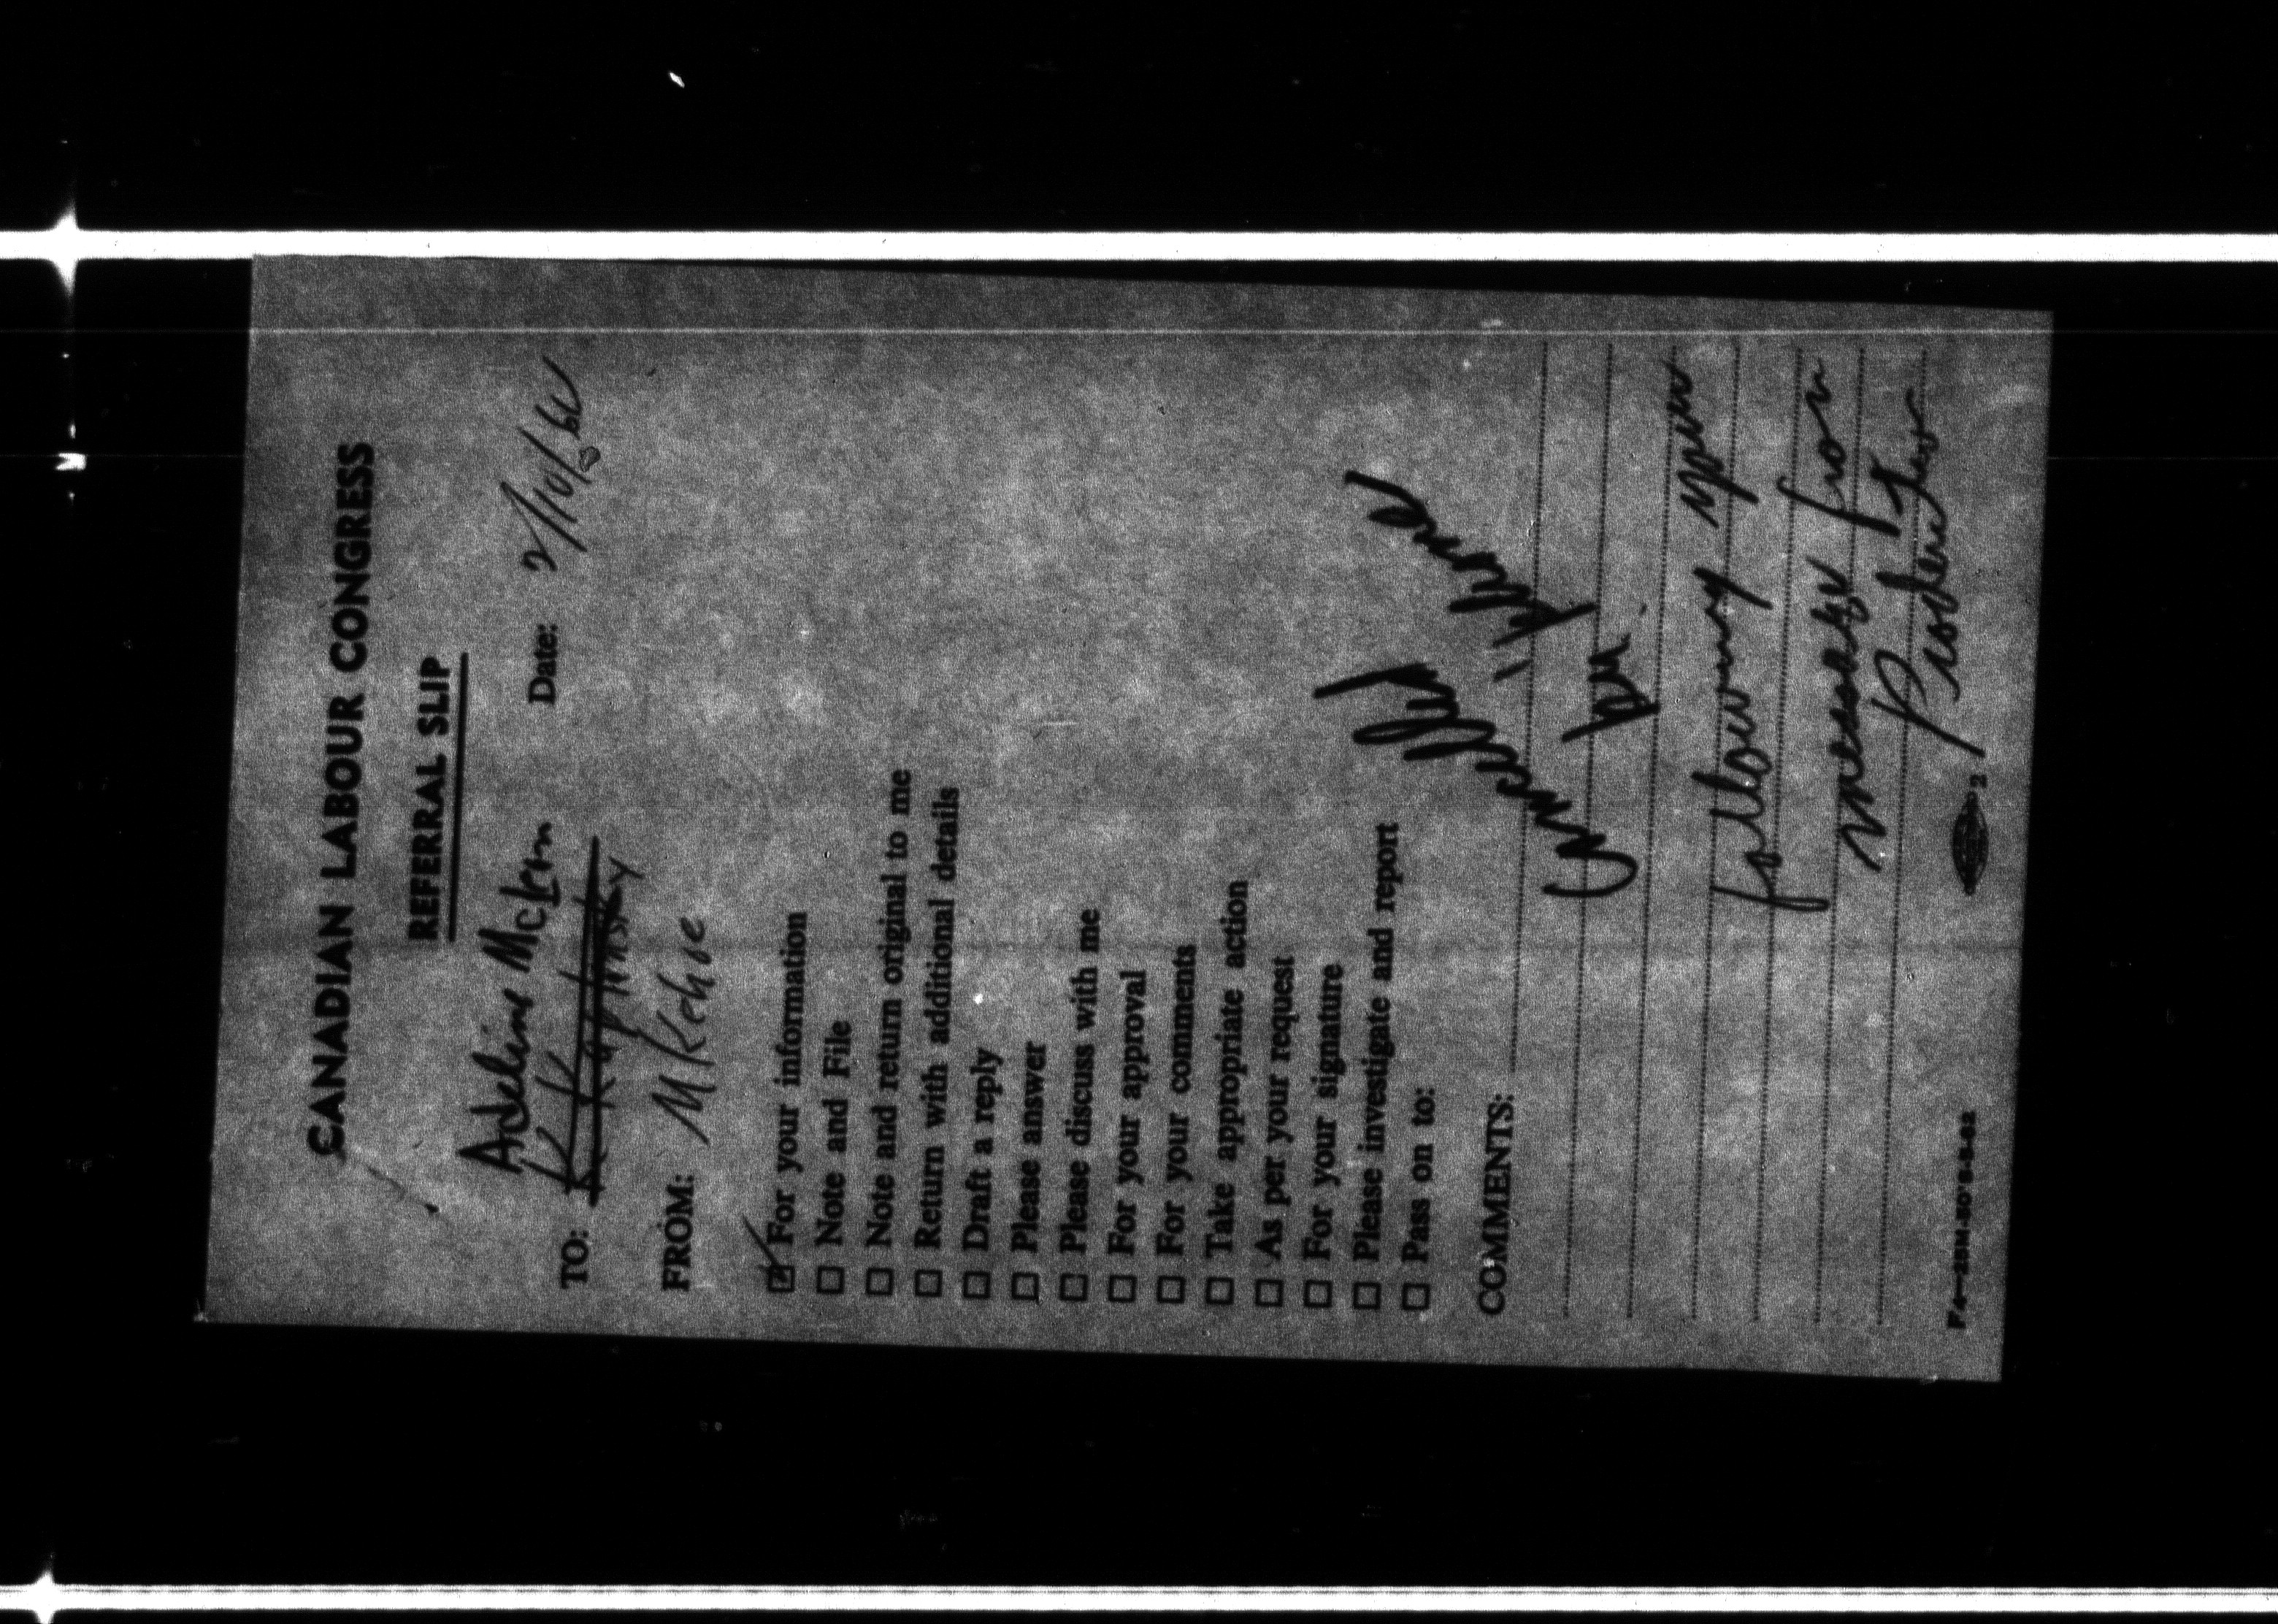 CANADIAN LABOUR CONGRESS
REFERRAL SLIP
Adeline
K Kaplansky
Date: 2/10/62
TO:
FROM: M Kehoe
For your information
Note and File
Note and return original to me
Return with additional details
Draft a reply
Please answer
Please discuss with me
For your approval
For your comments
Take appropriate action
As per your request
For your signature
Please investigate and report
Pass on to:
COMMENTS:
following upon
message from